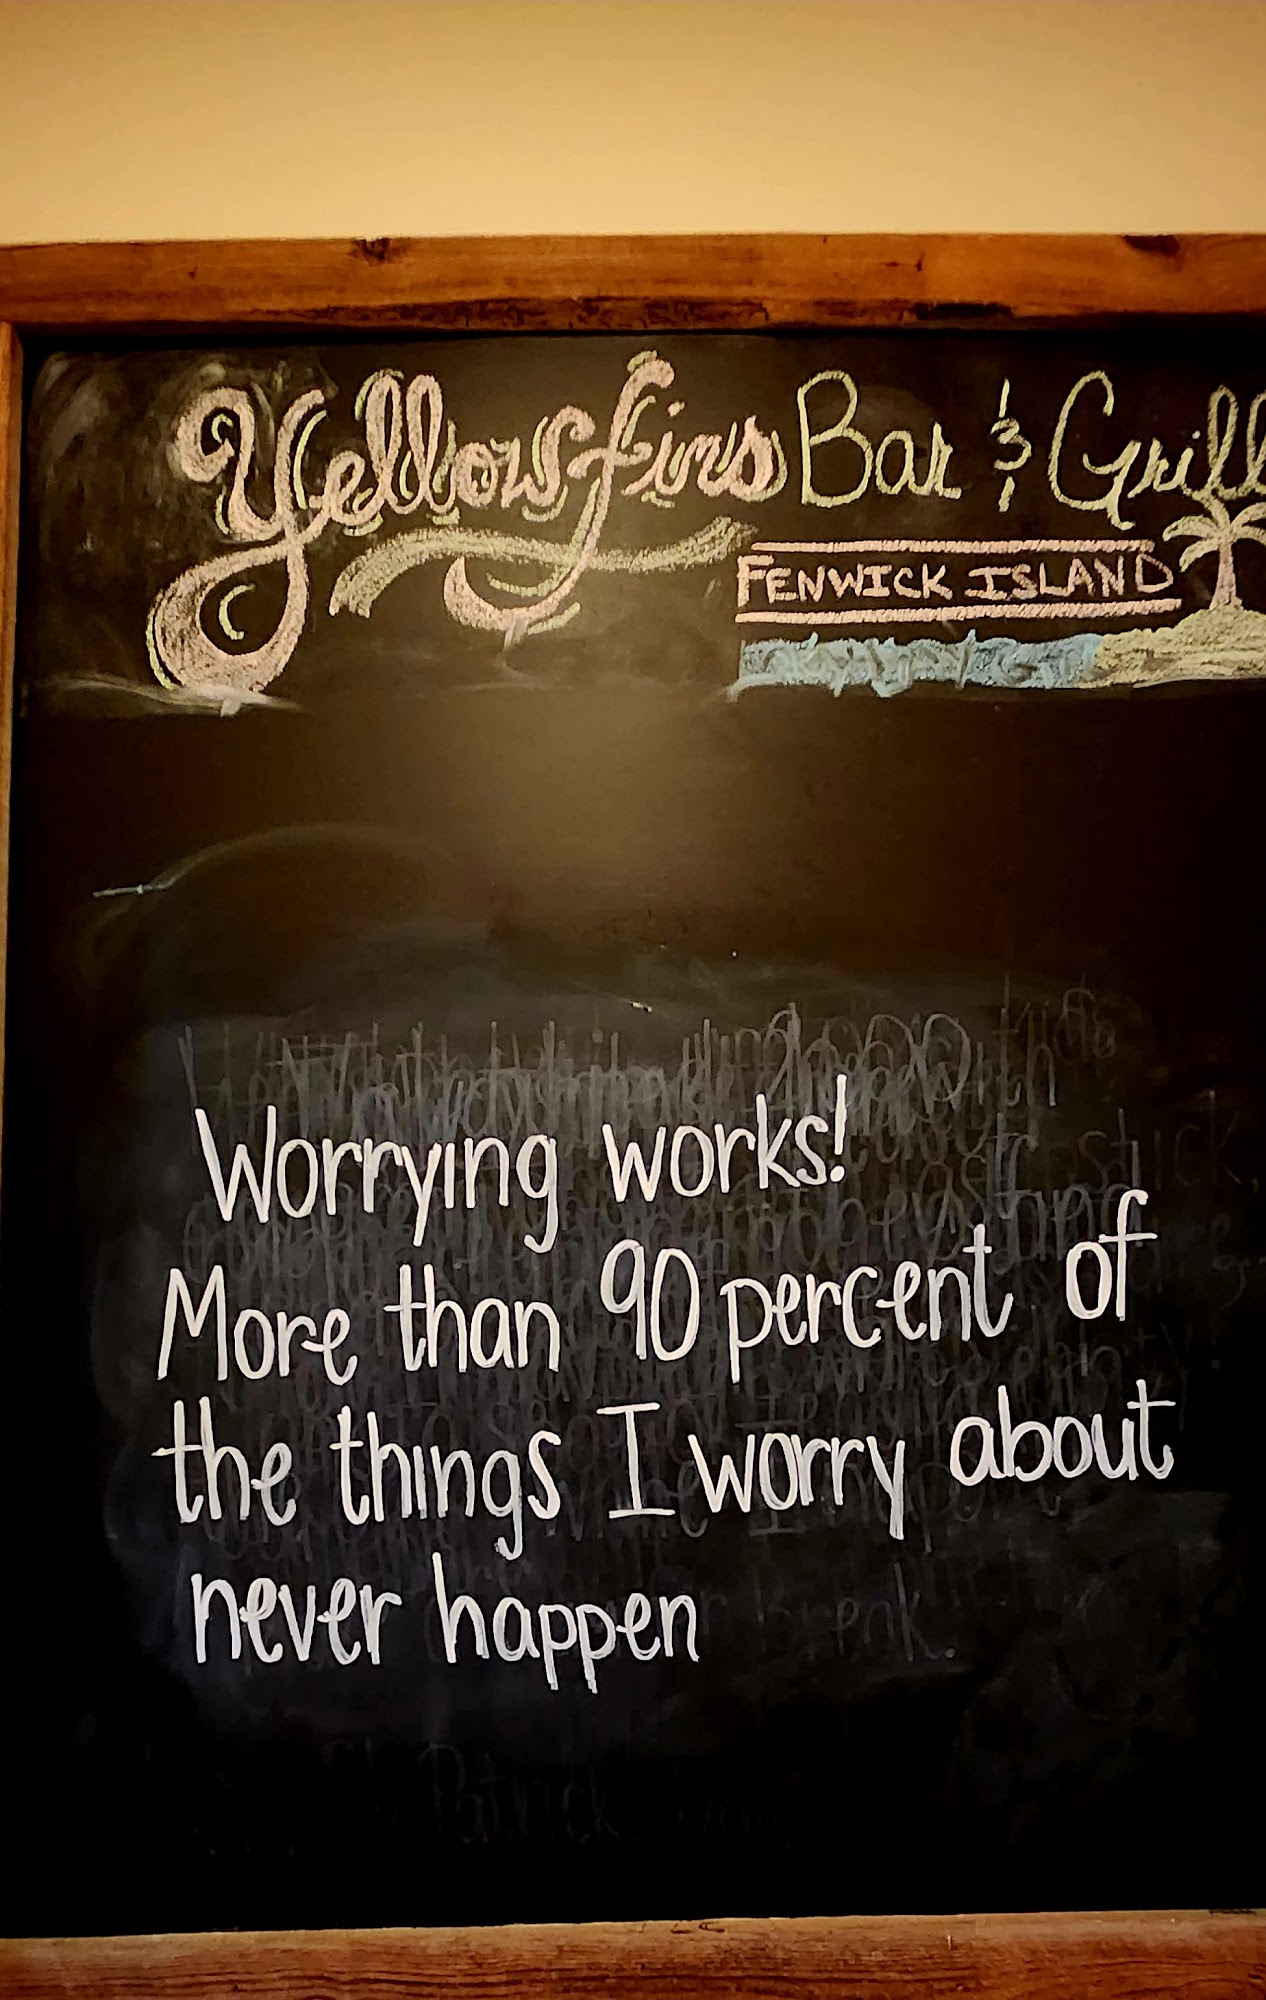 Yellowfins Bar & Grill
FENWICK ISLAND
Worrying works!
More than 90 percent of
the things I worry about
never happen
break.
Patrick